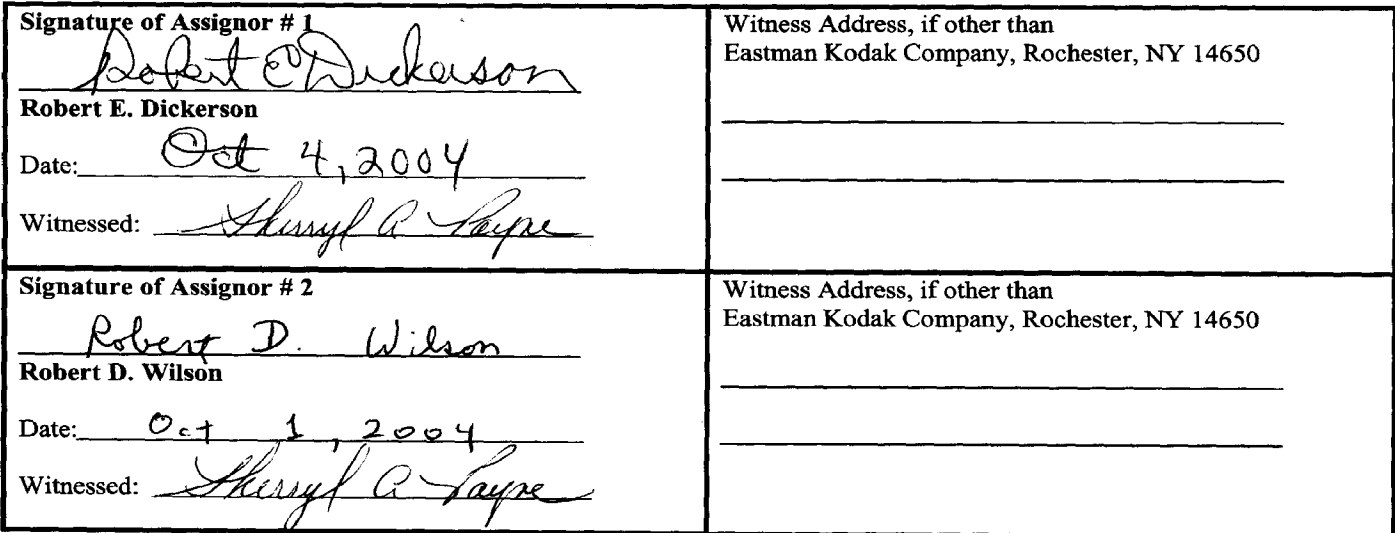 Signature of Assignor # 1
Robert E Dickerson
Robert E. Dickerson
Date: Oct 4, 2004
Witnessed: Sherryl A Payne
Witness Address, if other than
Eastman Kodak Company, Rochester, NY 14650
Signature of Assignor # 2
Robert D. Wilson
Robert D. Wilson
Date: Oct 1, 2004
Witnessed: Sherryl A Payne
Witness Address, if other than
Eastman Kodak Company, Rochester, NY 14650